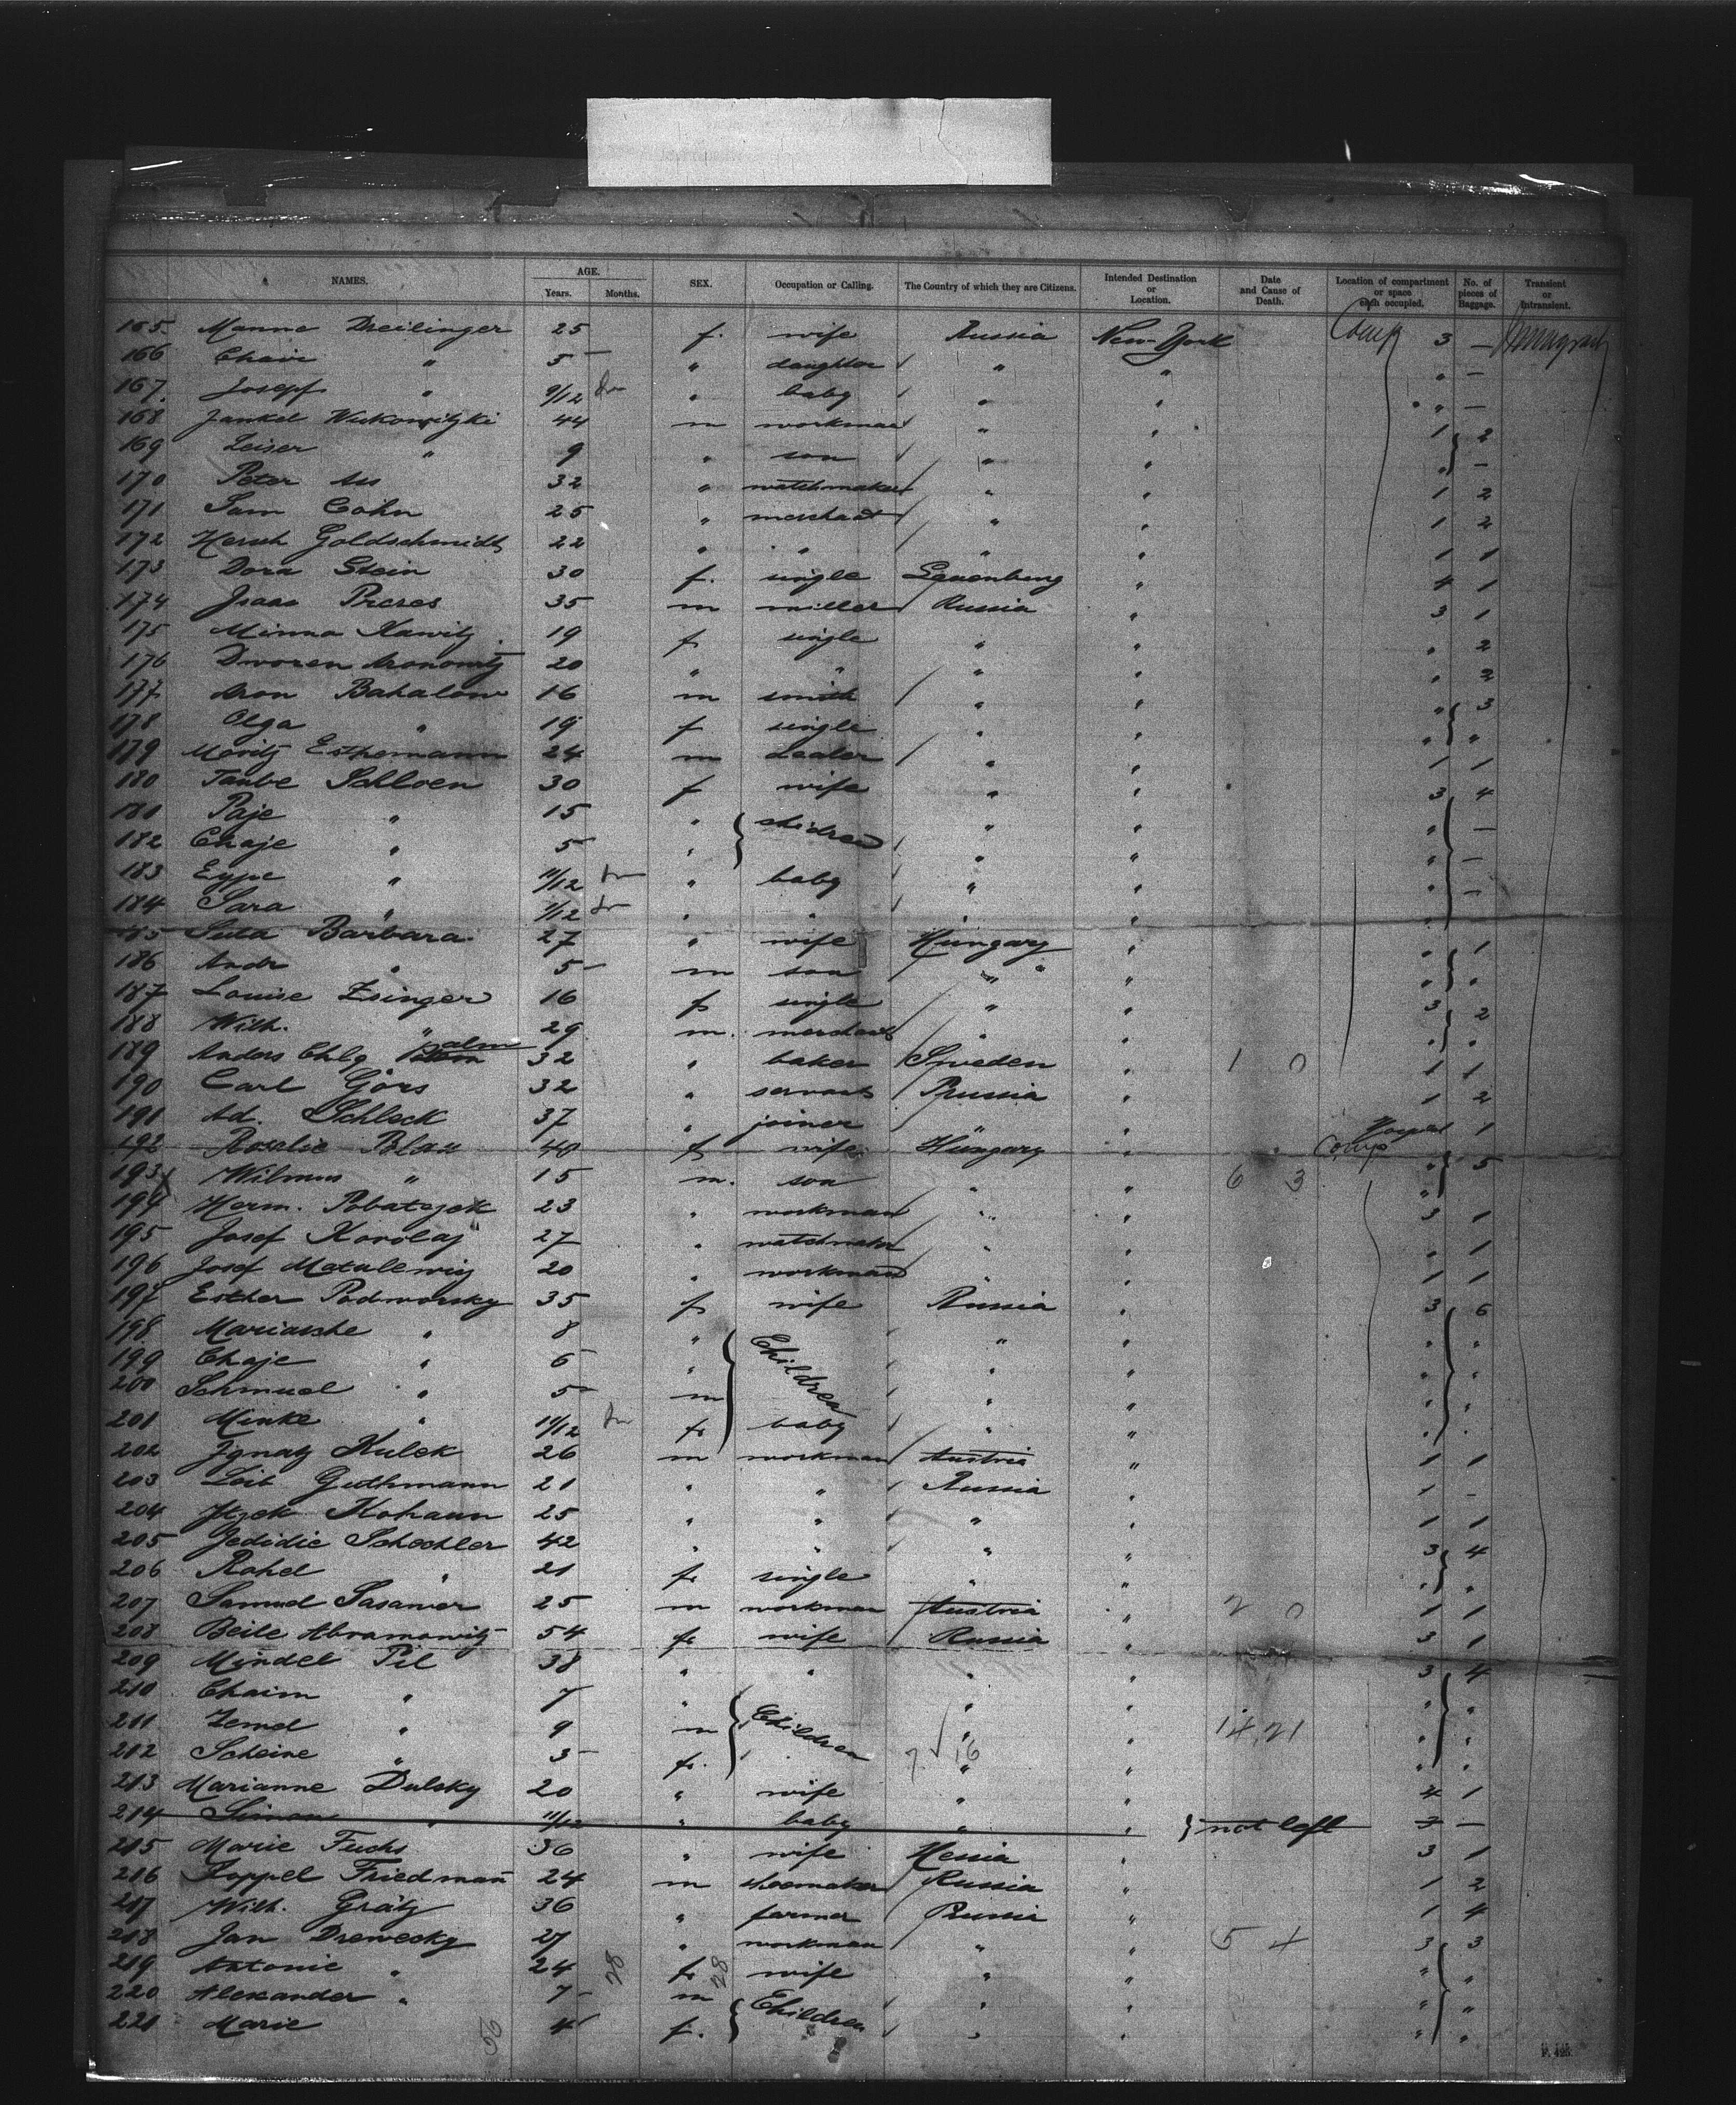 NAMES. AGE. Years. Months. SEX. Occupation or Calling. The Country of which they are Citizens. Intended Destination or Location. Date and Cause of Death. Location of compartment or space each occupied. No. of pieces of Baggage. Transient or Intransient.
165. Manna Dreilinger 25 f. wife Russia New-York Comp 3 —
166 " 5 " daughter " " " —
167. Josepf " 9/12 " baby " " " —
168 Jankel 44 m workman " " 1 2
169 Leiser " 9 " son " " " —
170 Peter 32 " watchmaker " " 1 2
171 Sam Cohn 25 " merchant " " 1 2
172 Hersch Goldschmidt 22 " " " " 1 1
173 Dora Stein 30 f. single " 4 1
174 Isaac Preres 35 m miller Russia " 3 1
175 Minna Kawitz 19 f single " " " 2
176 Dworen Aronowitz 20 " " " " " 2
177 Aron Bahalow 16 m smith " " " 3
178 Olga " 19 f single " " " "
179 Moritz Esthermann 24 m dealer " " 1 1
180 Taube Schloen 30 f wife " " 3 4
181 Paje " 15 " children " " " —
182 Chaje " 5 " " " " —
183 Eype " 11/12 " baby " " " —
184 Sara " 1/12 " " " " "
185 Suta Barbara 27 " wife Hungary " " 1
186 Andr " 5 m son " " " "
187 Louise Zsinger 16 f single " " 3 2
188 Wilh. " 29 m. merchant " " " "
189 Anders Chlg alm 32 " baker Sweden " 1 0 1 1
190 Carl Görs 32 " servant Prussia " 1 2
191 Ad. Schleck 37 " joiner " Hospital 1
192 Rosalie Blau 40 f wife Hungary " Comp " 5
193 Wilmus " 15 m. son " " 6 3 "
194 Herm. Pobatzek 23 " workman " " 3 1
195 Josef Korolaj 27 " watchmaker " " " 1
196 Josef Matulewig 20 " workman " " 1 1
197 Esther Podworsky 35 f wife Russia " 3 6
198 Mariasche " 8 " Children " " " "
199 Chaje " 6 " " " " "
200 Schmuel " 5 m " " " "
201 Minke " 11/12 f. baby " " " "
202 Ignatz Kulek 26 m workman Austria " 1 1
203 Leib Guthmann 21 " " Russia " 1 -
204 Itzek Kohann 25 " " " " 1 1
205 Jedidie Schechler 42 " " " " 3 4
206 Rahel " 21 f. single " " " "
207 Samuel Sasaner 25 m workman Austria " 2 0 1 1
208 Beile Abramowitz 54 f. wife Russia " 3 1
209 Mindel Pil 38 " " " " 3 4
210 Chaim " 7 " Children " " " "
211 Zemel " 9 m " " 14,21 " "
212 Scheine " 3 f. 16 " " " "
213 Marianne Dulsky 20 " wife " " 4 1
214 Simon " 11/12 " baby " " not left 3 —
215 Marie Fuchs 36 " wife Hessia " 3 1
216 Koppel Friedmann 24 m shoemaker Russia " 1 2
217 Wilh. Grätz 36 " farmer Prussia " 1 4
218 Jan Drewecky 27 " workman " " 5 4 3 3
219 Antonie " 24 f. wife " " " "
220 Alexander " 7 m Children " " " "
221 Marie 4 f. " " " "
28 28
56